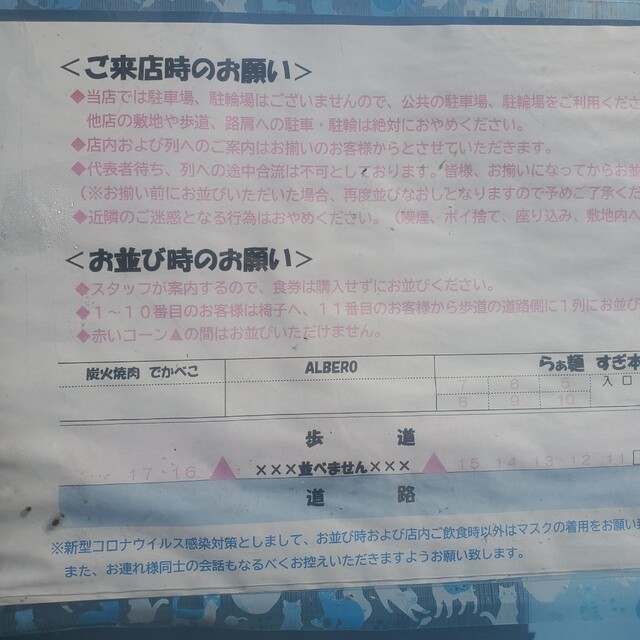 ＜ご来店時のお願い＞
◆当店では駐車場、駐輪場はございませんので、公共の駐車場、駐輪場をご利用くださ
他店の敷地や歩道、路肩への駐車・駐輪は絶対におやめください。
◆店内および列へのご案内はお揃いのお客様からとさせていただきます。
◆代表者待ち、列への途中合流は不可としております。皆様、お揃いになってからお並
（※お揃い前にお並びいただいた場合、再度並びなおしとなりますので予めご了承くだ
◆近隣のご迷惑となる行為はおやめください。（喫煙、ポイ捨て、座り込み、敷地内へ
＜お並び時のお願い＞
◆スタッフが案内するので、食券は購入せずにお並びください。
◆１～１０番目のお客様は椅子へ、１１番目のお客様から歩道の道路側に１列にお並び
◆赤いコーン▲の間はお並びいただけません。
炭火焼肉 でかべこ ALBERO らぁ麺 すぎ本
7 6 5 入口
8 9 10
歩 道
17 16 ▲ ×××並べません××× ▲ 15 14 13 12 11
道 路
※新型コロナウイルス感染対策としまして、お並び時および店内ご飲食時以外はマスクの着用をお願い致
また、お連れ様同士の会話もなるべくお控えいただきますようお願い致します。